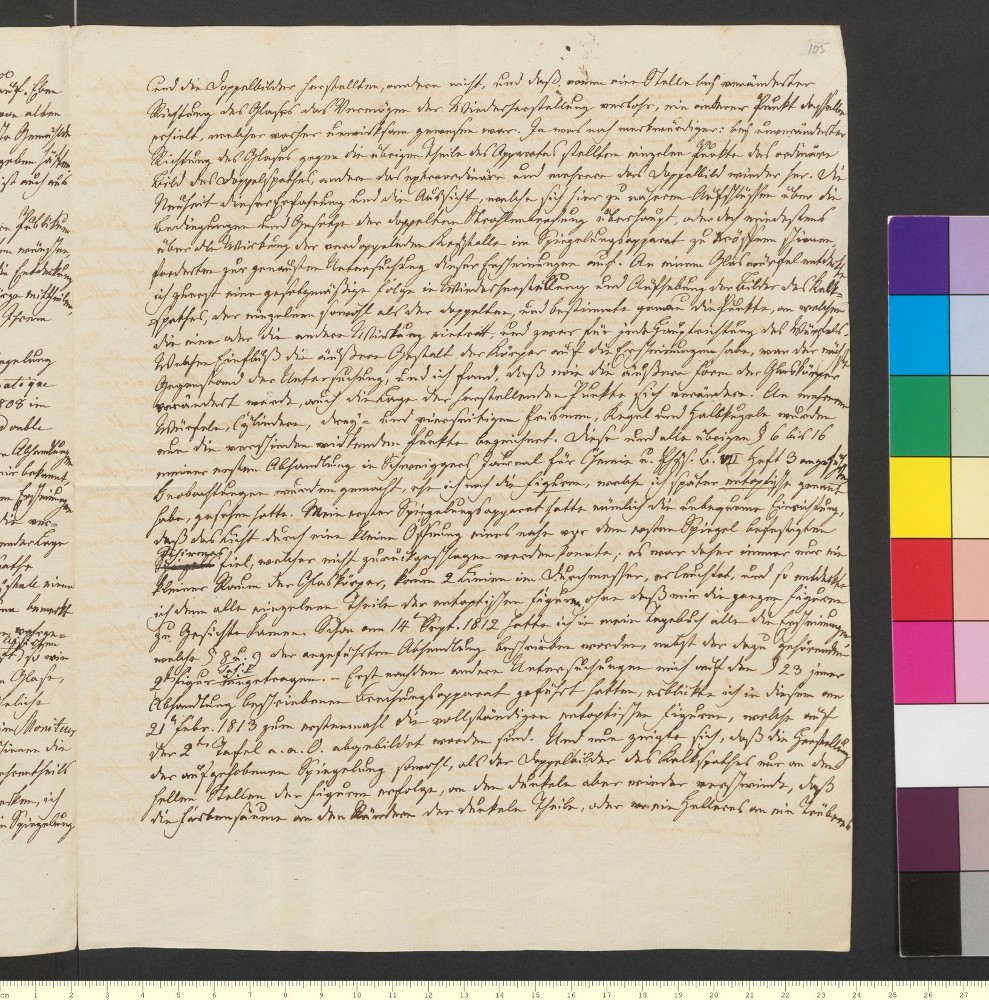 105
und die Doppelbilder herstellten, andere nicht, und daß, wenn eine Stelle bey veränderter
Richtung des Glases das Vermögen der Wiederherstellung verlohr, ein anderer Punkt dasselbe
erhielt, welcher vorher unwirksam gewesen war. Ja was noch merkwürdiger: bey unveränderter
Richtung des Glases gegen die übrigen Theile des Apparates stellten einzelne Punkte das ordinäre
Bild des Doppelspathes, andere das extraordinäre und mehrere das Doppelbild wieder her. Die
Neuheit dieser Erfahrung und die Aussicht, welche sich hier zu nähern Aufschlüssen über die
Bedingungen und Gesetze der doppelten Strahlenbrechung überhaupt, oder doch mindestens
über die Wirkung der verdoppelnden Krystalle im Spiegelungsapparat zu eröffnen schienen,
forderten zur genausten Untersuchung dieser Erscheinungen auf. An einem Glaswürfel entdeckte
ich zuerst eine gesetzmäßige Folge in Wiederherstellung und Aufhebung der Bilder des Kalk-
spathes, der einzelnen sowohl als der doppelten, und bestimmte genau die Punkte, an welchen
die eine oder die andere Wirkung eintritt, und zwar für jede Hauptrichtung des Würfels.
Welchen Einfluß die äußere Gestalt der Körper auf die Erscheinungen habe, war der nächste
Gegenstand der Untersuchung, und ich fand, daß wie die äußere Form der Glaskörper
verändert werde, auch die Lage der herstellenden Punkte sich verändere. An mehreren
Würfeln, Cylindern, drey- und vierseitigen Prismen, Kegel und Halbkugeln wurden
nun die verschieden wirkenden Punkte bezeichnet. Diese und alle übrigen § 6 bis 16
meiner ersten Abhandlung in Schweiggers Journal für Chemie u. Phys. B. VII Heft 3 angeführten
Beobachtungen wurden gemacht, ehe ich noch die Figuren, welche ich später entoptische genannt
habe, gesehen hatte. Mein erster Spiegelungsapparat hatte nämlich die unbequeme Einrichtung,
daß das Licht durch eine kleine Öffnung eines nahe vor dem ersten Spiegel befestigten
Schirmes
fiel, welcher nicht zurückgeschlagen werden konnte; es war daher immer nur ein
kleiner Raum der Glaskörper, kaum 2 Linien im Durchmesser, erleuchtet, und so entdeckte
ich denn alle einzelnen Theile der entoptischen Figuren, ohne daß mir die ganzen Figuren
zu Gesichte kamen. Schon am 14 Sept. 1812 hatte ich in mein Tagebuch alle die Erscheinungen
welche § 8 u. 9 der angeführten Abhandlung beschrieben worden, nebst der dazu gehörenden
2 Figur Taf. I eingetragen. – Erst nachdem andere Untersuchungen mich auf den § 23 jener
Abhandlung beschriebenen Brechungsapparat geführt hatten, erblickte ich in diesem am
21 Febr. 1813 zum erstenmahl die vollständigen entoptischen Figuren, welche auf
der 2ten Tafel a. a. O. abgebildet worden sind. Und nun zeigte sich, daß die Herstellung
der aufgehobenen Spiegelung sowohl, als der Doppelbilder des Kalkspathes nur an den
hellen Stellen der Figuren erfolge, an den dunkeln aber wieder verschwinde, daß
die Farbensäume an den Rändern der dunkeln Theile, oder wo ein Helleres an ein Trüberes